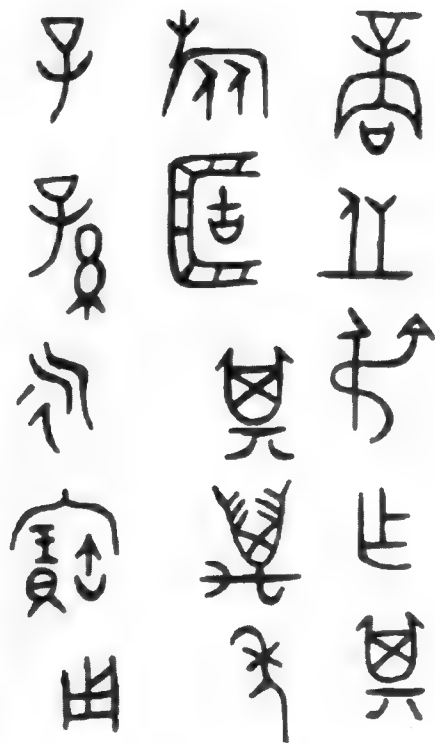 商丘弔乍其
旅簠其萬年
子孫永寶用